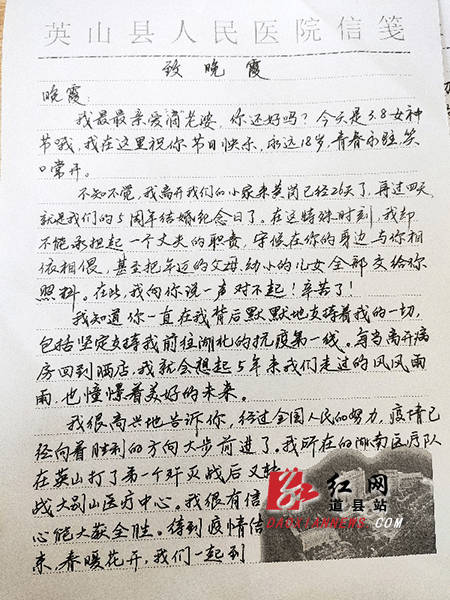 英山县人民医院信笺
致晚霞
晚霞:
我最最亲爱滴"老婆,你还好吗?今天是3.8女神
节哦,我在这里祝你节日快乐,永远18岁,青春永驻,笑
口常开。
不知不觉,我离开我们的小家来黄冈已经26天了,再过四天
就是我们的5周年结婚纪念日了。在这特殊时刻,我却
不能承担起一个丈夫的职责,守候在你的身边与你相
依相偎,甚至把年迈的父母,幼小的儿女全部交给你
照料。在此,我向你说一声对不起!辛苦了!
我知道你一直在我背后默默地支持着我的一切,
包括坚定支持我前往湖北的抗疫第一线。每当离开病
房回到酒店,我就会想起5年来我们走过的风风雨
雨,也憧憬着美好的未来。
我很高兴地告诉你,经过全国人民的努力,疫情已
经向着胜利的方向大步前进了。我所在的湖南医疗队
在英山打了第一个歼灭战后又转
战大别山医疗中心。我很有信
心能大获全胜。待到疫情结
束,春暖花开,我们一起到
红网
道县站
DAOXIANNEWS.COM